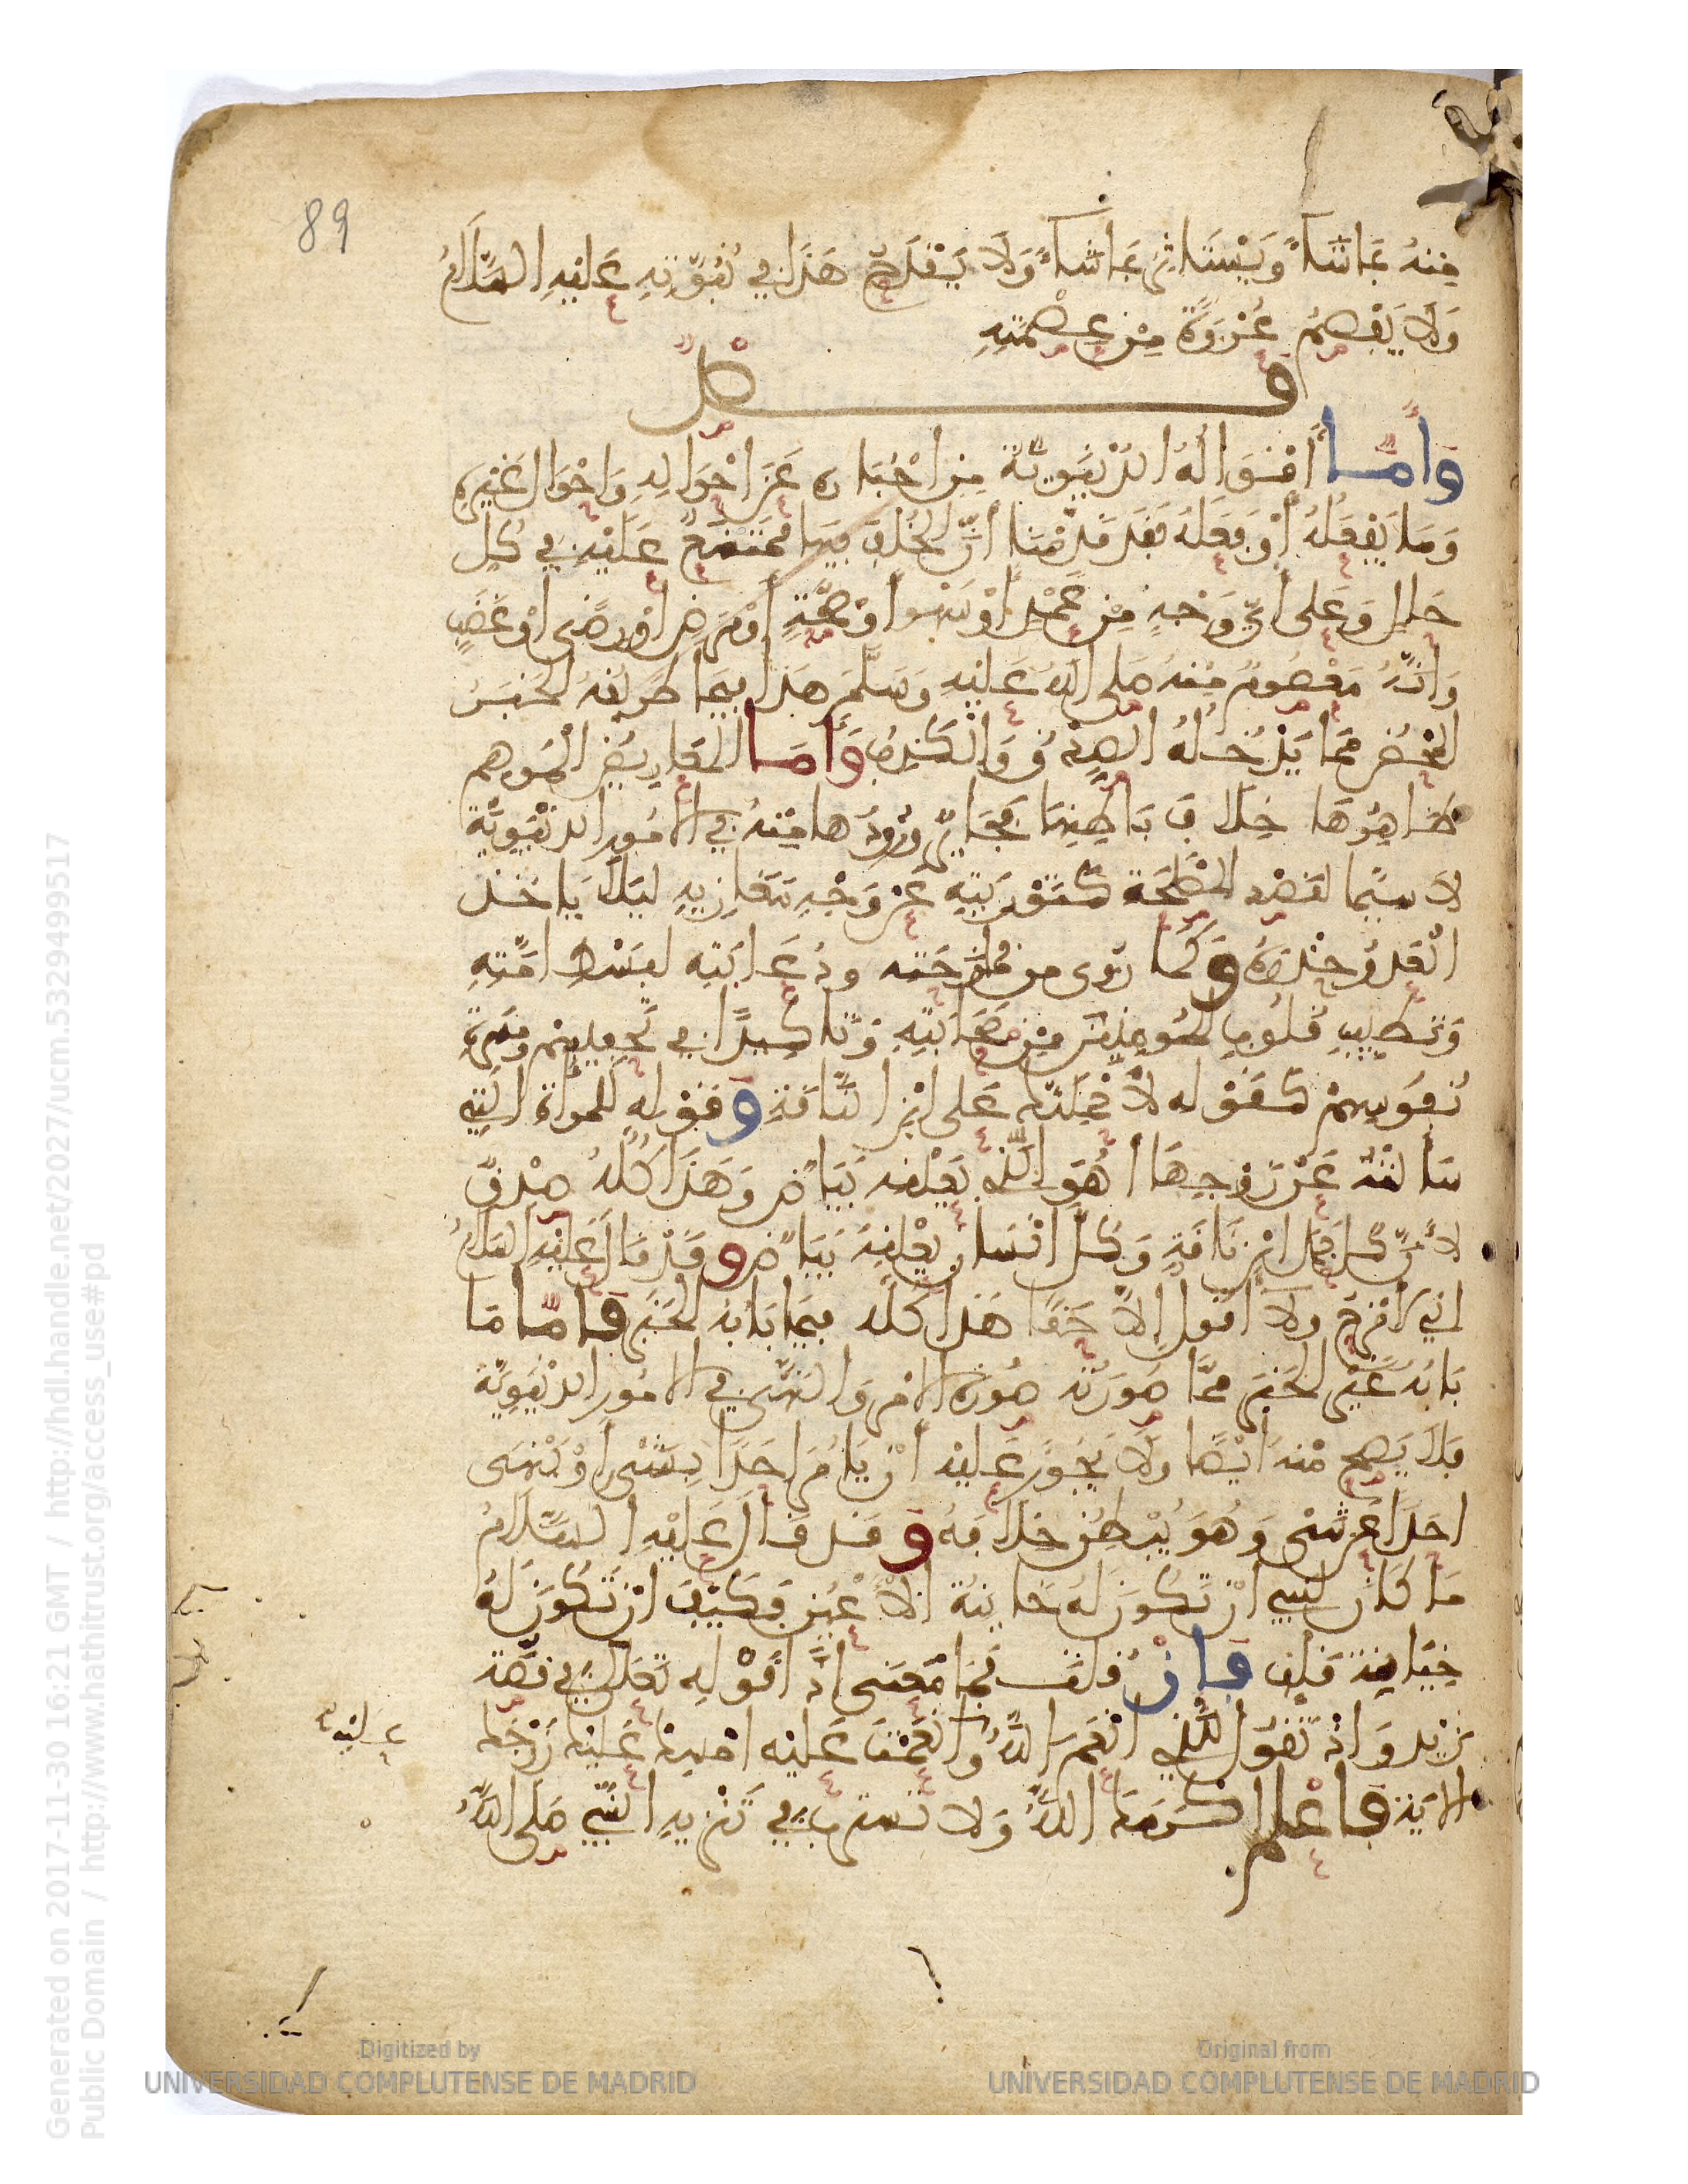 89
مِنهُ بمَا شَاءَ وَيَسْتَاثِرُ بمَا شَاءَ وَلَا يَقْدَحُ هَذَا في نُبُوَّتِهِ عَلَيْهِ السَّلَامُ
وَلَا يَفْصِمُ عُرْوَةً مِنْ عِصْمَتِهِ
فصل
وَأَمَّا أَقْوَالُهُ الدُّنْيَوِيَّةُ مِنِ اخْبَارِهِ عَنَ احْوَالِهِ وَاحْوَالِ غَيْرِهِ
وَمَا يَفْعَلُهُ أَوْ فَعَلَهُ فَقَدْ قَدَّمْنَا أَنَّ الْخُلْفَ فِيهَا مُمْتَنِعٌ عَلَيْهِ في كُلِّ
حَالٍ وَعَلَى أَيِّ وَجْهٍ مِنْ عَمْدٍ أَوْ سَهْوٍ اوْ صِحَّةٍ أَوْ مَرَضٍ اوْ رِضًى اوْ غَضَبٍ
وَأَنَّهُ مَعْصُومٌ مِنْهُ صَلى اللهُ عَلَيْهِ وَسَلَّمَ هَذَا فِيمَا طَرِيقُهُ الْخَبَرُ
الْمَحْضُ مِمَّا يَدْخُلُهُ الصِّدْقُ وَالْكَذِبُ وَأَمَّا الْمَعَارِيضُ الْمُوهِمُ
ظَاهِرُهَا خِلَافَ بَاطِنِهَا فَجَائِزٌ وُرُودُهَا مِنْهُ في الامُورِ الدُّنْيَوِيَّةِ
لَا سِيَّمَا لِقَصْدِ الْمَصْلَحَةِ كَتَوْرِيَتِهِ عَنْ وَجْهِ مَغَازِيهِ لِيَلَّا يَاخُذَ
الْعَدُوُّ حِذْرَهُ وَكَمَا رُوِى مِن مُمَازَحَتِهِ ودُعَابَتِهِ لِبَسْطِ امَّتِهِ
وَتَطْيِيبِ قُلُوبِ الْمُومِنِينَ مِنْ صَحَابَتِهِ وَتَاكِيدًا في تَحَبُّبِهِمْ ومَسَرَّةِ
نُفُوسِهِمْ كَقَوْلِهِ لَأَحْمِلَنَّكَ عَلَى ابْنِ النَّاقَةِ وَقَوْلِهِ لِلْمَرْأَةِ الَّتِي
سَأَلَتْهُ عَنْ زَوْجِهَا أَهُوَ الَّذِي بِعَيْنِهِ بَيَاضٌ وَهَذَا كُلُّهُ صِدْقٌ
لأَنَّ كُلَّ جَمَلٍ ابْنُ نَاقَةٍ وَكُلُّ انْسَانٍ بِعَيْنِهِ بَيَاضٌ وَقَدْ قَالَ عَلَيْهِ السَّلَامُ
اني لامْزَحُ ولَا اقُولُ إِلَّا حَقًّا هَذَا كُلُّهُ فِيمَا بَابُهُ الْخَبَرُ فَامَّا مَا
بَابُهُ غَيْرُ الْخَبَرِ مِمَّا صُورَتُهُ صُورَةُ الامْرِ وَالنَّهْىِ في الامُورِ الدُّنْيَوِيَّةِ
فَلَا يَصِحُّ مِنْهُ أَيْضًا ولَا يَجُوزُ عَلَيْهِ أَنْ يَامُرَ احَدًا بِشَىْءٍ أَوْ يَنْهَى
احَدًا عَنْ شَىْءٍ وَهُوَ يُبْطِنُ خِلَافَهُ وَقَدْ قَالَ عَلَيْهِ السَّلَامُ
مَا كَانَ لنبِي انْ تَكُونَ لَهُ خَائِنَةُ الأَعْيُنِ فَكَيْفَ انْ تَكُونَ لَهُ
خِيَانَةُ قَلْبٍ فَإِنْ قُلْتَ فَمَا مَعْنَى إذًا قَوْلِهِ تَعَالَى في قِصَّةِ
زَيْدٍ وَاذْ تَقُولُ لِلَّذِي انْعَمَ اللَّهُ وَانْعَمْتَ عَلَيْهِ امْسِكْ عَلَيْكَ زَوْجَكَ
عَلَيْهِ
الايَةَ فَاعْلَم اكْرَمَكَ اللَّهُ وَلا تَسْتَرِبْ في تَنْزِيهِ النَّبِيِّ صَلى اللَّهُ